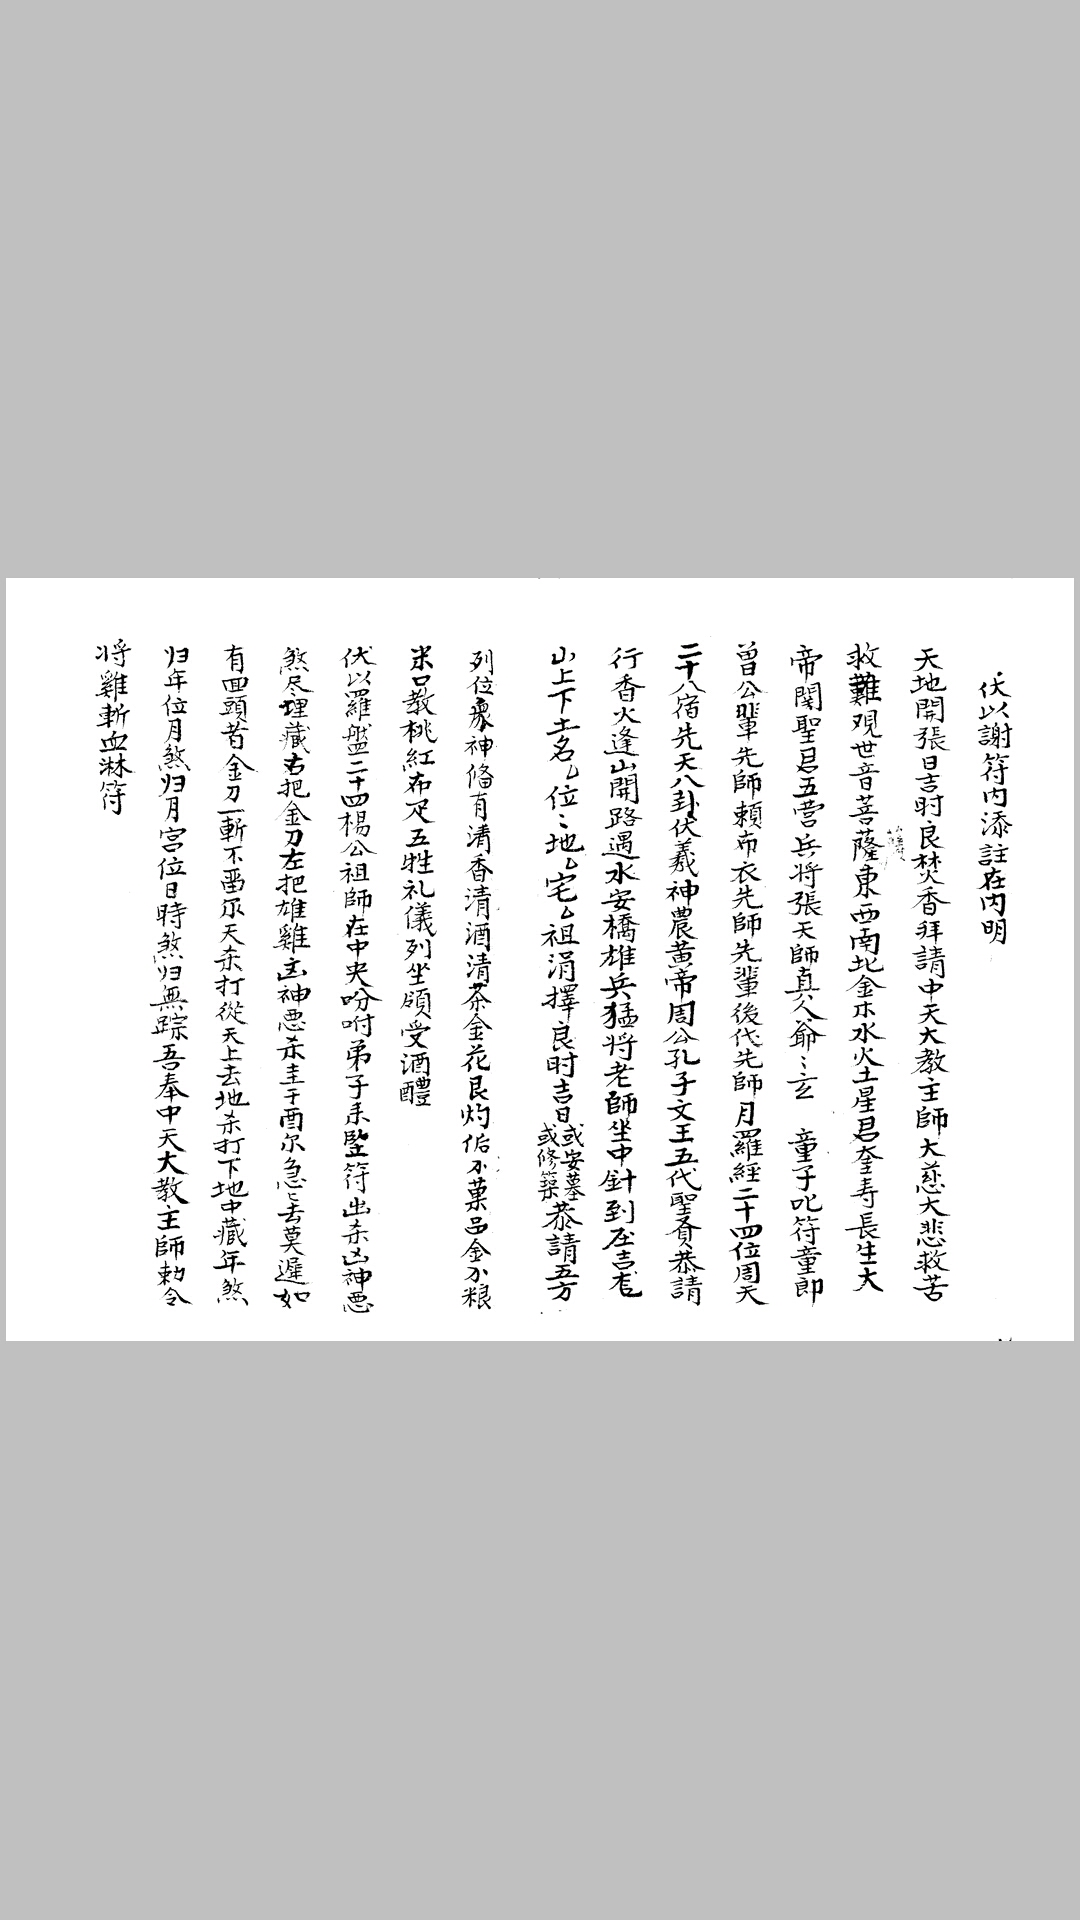 伏以謝符内添註在内明
天地開張日吉时良焚香拜請中天大教主師大慈大悲救苦
救難观世音菩薩東西南北金木水火土星君奎寿長生大
帝関聖君五营兵将張天師真人爺〻玄 童子叱符童郎
曾公輩先師賴布衣先師先輩後代先師月羅經二十四位周天
二十八宿先天八卦伏羲神農黄帝周公孔子文王五代聖賢恭請
行香火逢山開路遇水安橋雄兵猛将老師坐中針到座吉
山上下土名厶位〻地厶宅厶祖涓擇良时吉日或安墓或修築恭請五方
列位衆神俻有清香清酒清茶金花艮灼斋菓品金艮粮
米口教桃紅布疋五牲礼儀列坐領受酒醴
伏以羅盤二十四楊公祖師在中央吩咐弟子来竪符出杀凶神悪
煞尽埋藏右把金刀左把雄雞凶神悪杀圭于酉尔急〻去莫遲如
有回頭者金刀一斬不畱尔天杀打從天上去地杀打下地中藏年煞
归年位月煞归月宫位日時煞归無踪吾奉中天大教主師勅令
将雞斬血淋符